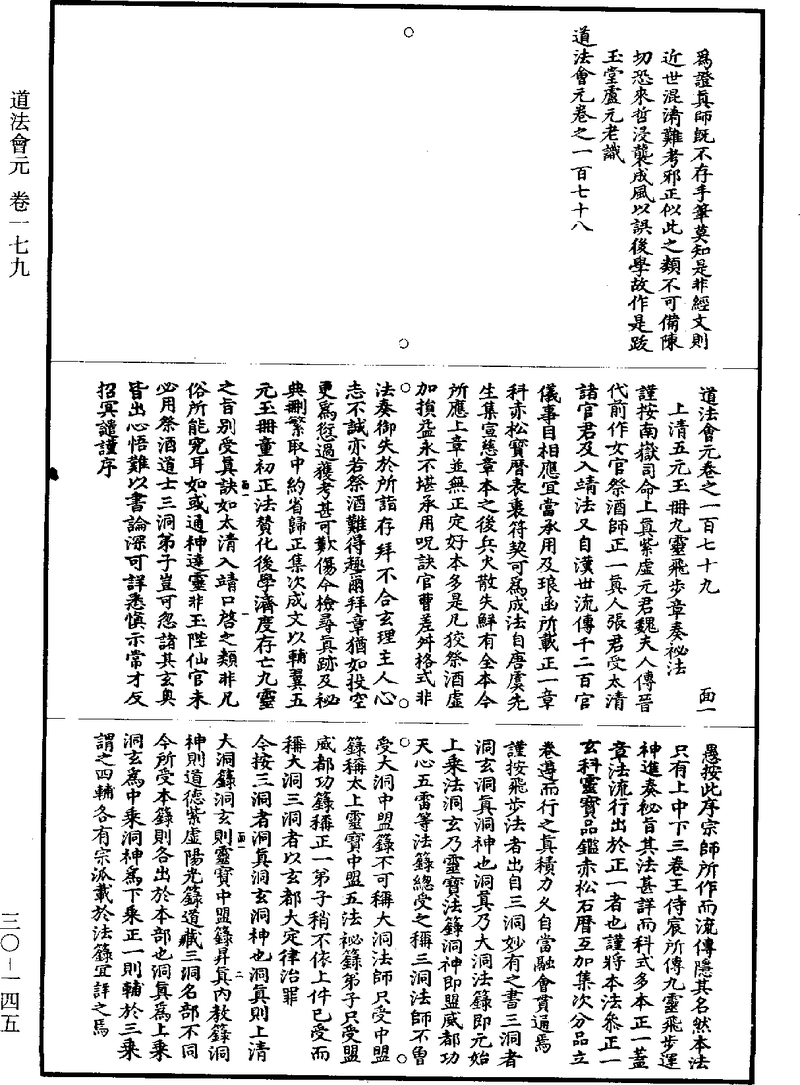 道法會元 卷一七九
三〇–一四五
爲證真師既不存手筆莫知是非經文則
近世混淆難考邪正似此之類不可備陳
切恐來哲浸襲成風以誤後學故作是跋
玉堂盧元老識
道法會元卷之一百七十八
道法會元卷之一百七十九 面一
上清五元玉冊九靈飛步章奏秘法
謹按南嶽司命上真紫虛元君魏夫人傳晉
代前作女官祭酒師正一真人張君受太清
諸官君及入靖法又自漢世流傳千二百官
儀事目相應宜當承用及琅函所載正一章
科赤松寶曆表裏符契可爲成法自唐虞先
生集宣慈章本之後兵火散失鮮有全本今
所應上章並無正定好本多是凡狡祭酒虛
加損益永不堪承用呪訣官曹差舛格式非
法奏御失於所詣存拜不合玄理主人心
志不誠亦若祭酒難得趣爾拜章猶如投空
更爲愆過獲考甚可歎傷今檢尋真跡及秘
典刪繁取中約省歸正集次成文以輔翼五
元玉冊童初正法贊化後學濟度存亡九靈
之旨別受真訣如太清入靖口啓之類非凡
俗所能究耳如或通神達靈非玉陛仙官未
必用祭酒道士三洞弟子豈可忽諸其玄奥
皆出心悟難以書論深可詳悉慎示常才反
招冥譴謹序
愚按此序宗師所作而流傳隱其名然本法
只有上中下三卷王侍宸所傳九靈飛步運
神進奏秘旨其法甚詳而科式多本正一蓋
章法流行出於正一者也謹將本法叅正一
玄科靈寶品鑑赤松石曆互加集次分品立
卷遵而行之真積力久自當融會貫通焉
謹按飛步法者出自三洞妙有之書三洞者
洞玄洞真洞神也洞真乃大洞法籙即元始
上乘法洞玄乃靈寶法籙洞神即盟威都功
天心五雷等法籙總受之稱三洞法師不曾
受大洞中盟籙不可稱大洞法師只受中盟
籙稱太上靈寶中盟五法祕籙弟子只受盟
威都功籙稱正一弟子稍不依上件已受而
稱大洞三洞者以玄都大定律治罪
今按三洞者洞真洞玄洞神也洞真則上清
大洞籙洞玄則靈寶中盟籙昇真內教籙洞
神則道德紫虛陽光籙道藏三洞名部不同
今所受本籙則各出於本部也洞真爲上乘
洞玄爲中乘洞神爲下乘正一則輔於三乘
謂之四輔各有宗派載於法籙宜詳之焉